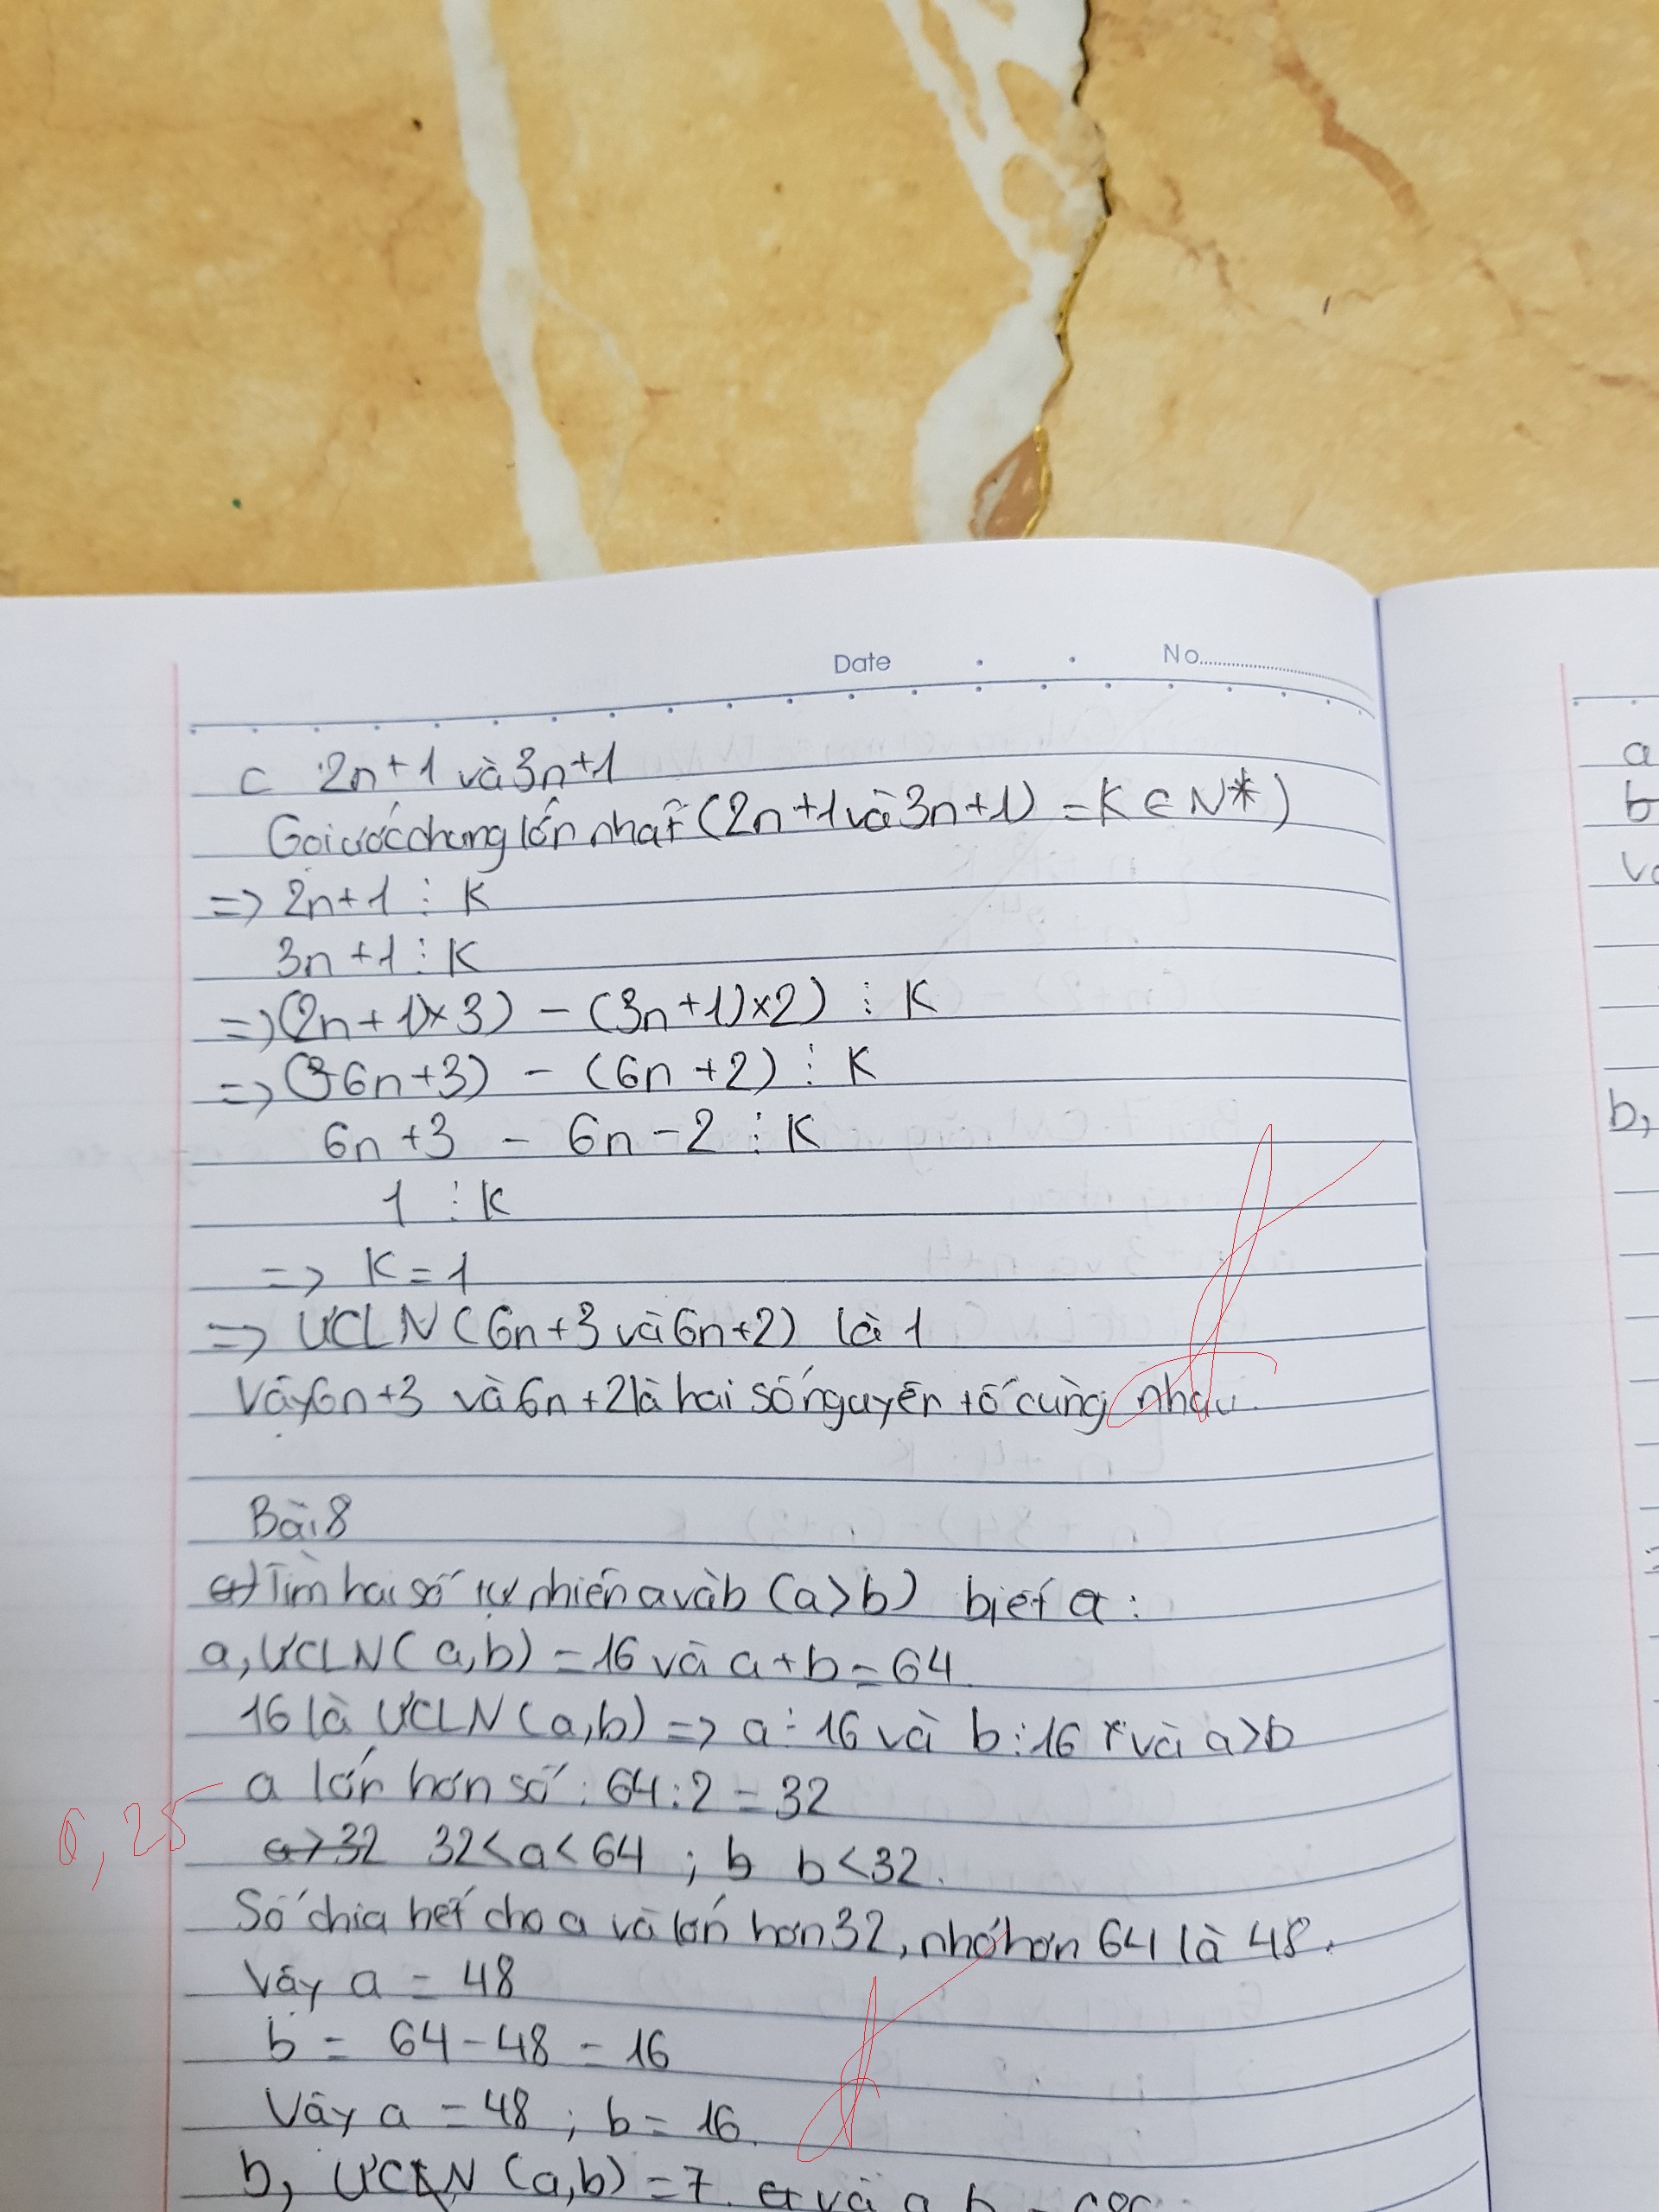 Date No
c 2n+1 và 3n+1
Gọi ước chung lớn nhất (2n+1 và 3n+1) = K ∈ N*)
=> 2n+1 ⋮ K
3n+1 ⋮ K
=> (2n+1)×3) - (3n+1)×2) ⋮ K
=> (6n+3) - (6n+2) ⋮ K
6n+3 - 6n-2 ⋮ K
1 ⋮ K
=> K=1
=> ƯCLN (6n+3 và 6n+2) là 1
Vậy 6n+3 và 6n+2 là hai số nguyên tố cùng nhau.
Bài 8
Tìm hai số tự nhiên a và b (a>b) biết a:
a, ƯCLN (a,b) = 16 và a+b = 64
16 là ƯCLN (a,b) => a ⋮ 16 và b ⋮ 16 và a>b
a lớn hơn số: 64:2 = 32
0,25
a>32 32<a<64 ; b b<32.
Số chia hết cho a và lớn hơn 32, nhỏ hơn 64 là 48.
Vậy a = 48
b = 64-48 = 16
Vậy a = 48 ; b = 16.
b, ƯCLN (a,b) = 7 và a b
a
b
b,